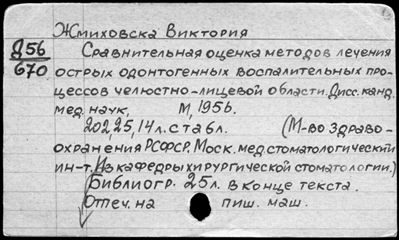 Жмиховска Виктория
Д56
670
Сравнительная оценка методов лечения
острых одонтогенных воспалительных про-
цессов челюстно-лицевой области. Дисс. канд.
мед. наук, М, 1956.
202, 25, 14 л. с табл. (М-во здраво-
охранения РСФСР. Моск. мед. стоматологический
ин-т. Из кафедры хирургической стоматологии.)
Библиогр. 25 л. в конце текста.
Отпеч. на пиш. маш.